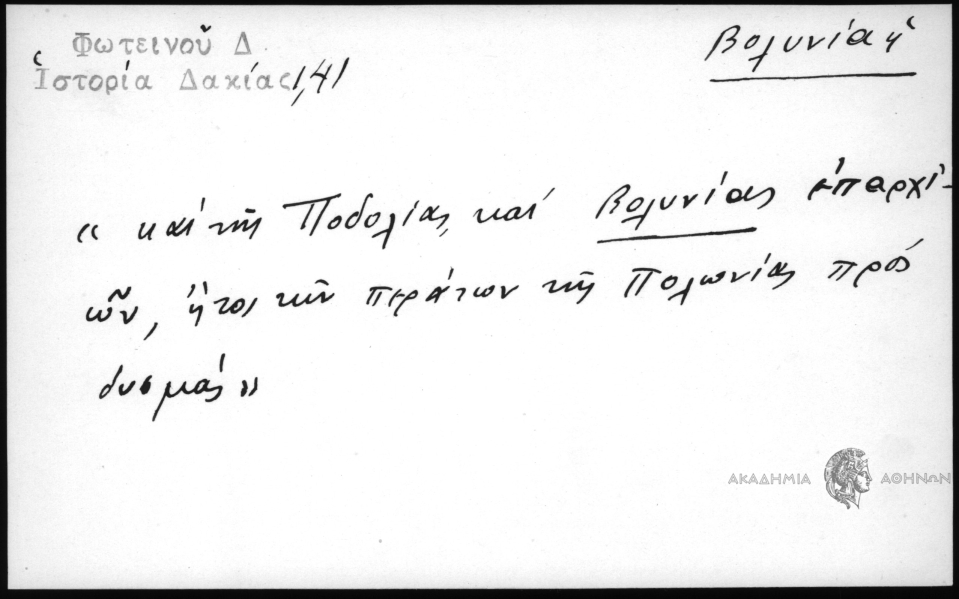 Φωτεινοῦ Δ
Ἱστορία Δακίας 1,41
Βολυνία ἡ
« καί τῆς Ποδολίας, καί Βολυνίας ἐπαρχι-
ῶν, ἤτοι τῶν περάτων τῆς Πολωνίας πρός
δυσμάς »
ΑΚΑΔΗΜΙΑ ΑΘΗΝΩΝ